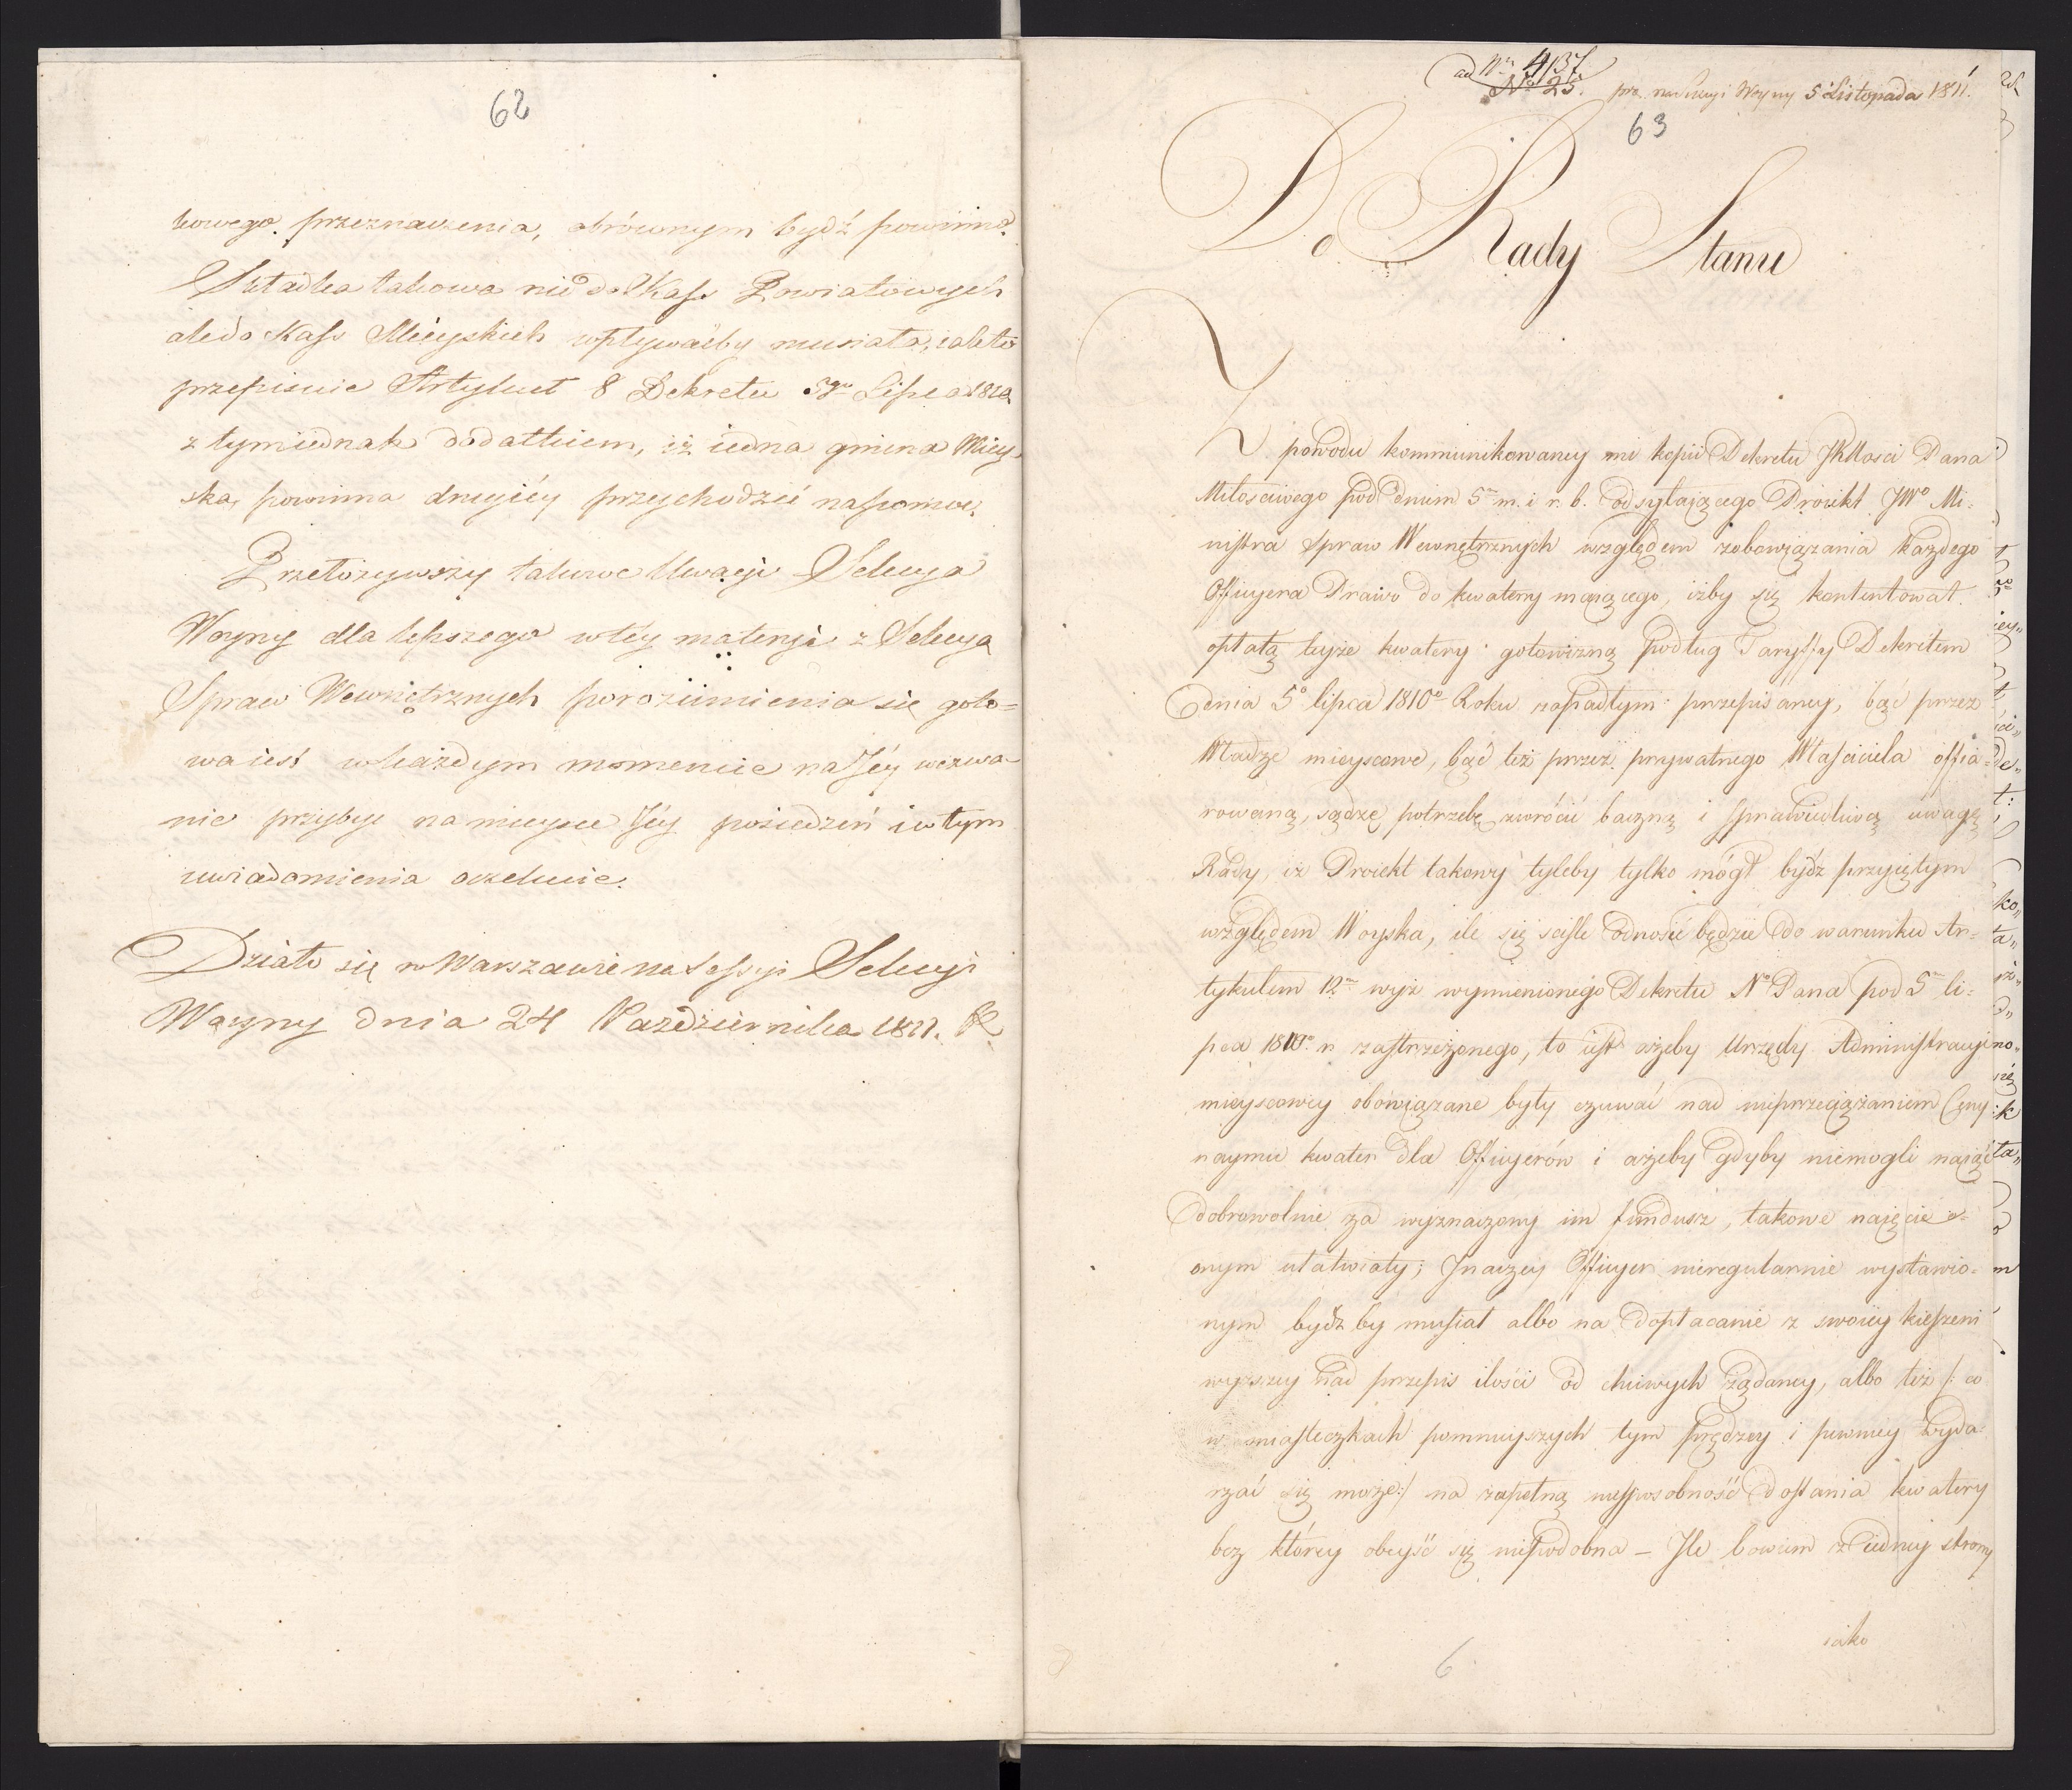 62
kowego przeznaczenia, obróconym bydź powinno.
Składka takowa nie do Kass Powiatowych
ale do Kass Mieyskich wpływaćby musiała, iak to
przepisuie Artykuł 8 Dekretu 5go Lipca 1810
z tym iednak dodatkiem, iż iedna gmina Miey-
ska, powinna drugiéy przychodzić na pomoc.
Przełożywszy takowe Uwagi Sekcya
Woyny dla lepszego w téy materyi z Sekcyą
Spraw Wewnętrznych porozumienia się goto=
wa iest w każdym momencie na Jéy wezwa-
nie przybyć na mieysce Jéy posiedzeń i w tym
uwiadomienia oczekuie.
Działo się w Warszawie na Sessyi Sekcyi
Woyny dnia 24 Października 1811. R.
ad Nrm 4137
No 25.
prz. na Sekcyi Woyny 5 Listopada 1811.
63
Do Rady Stanu
Z powodu kommunikowaney mi kopii Dekretu JKMości Pana
Miłościwego pod dniem 5m m. i r. b. odsyłaiącego Proiekt JWo Mi=
nistra Spraw Wewnętrznych względem zobowiązania każdego
Officyera Prawo do kwatery maiącego, iżby się kontentował
opłatą teyże kwatery gotowizną podług Taryffy Dekretem
dnia 5o lipca 1810o Roku zapadłym przepisaney, bąć przez
Władze mieyscowe, bąć też przez prywatnego Właściciela offia=
rowaną, sądzę potrzebę zwrócić baczną i sprawiedliwą uwagę
Rady, iż Proiekt takowy tyleby tylko mógł bydź przyiętym
względem Woyska, ile się ściśle odnosić będzie do warunku Ar=
tykułem 12m wyż wymienionego Dekretu No Pana pod 5m li=
pca 1810o r. zastrzeżonego, to iest ażeby Urzędy Administracyi
mieyscowey obowiązane były czuwać nad nieprzeciążaniem Ceny
naymie kwater dla Officyerów i ażeby gdyby niemogli naiąć
dobrowolnie za wyznaczony im fundusz, takowe naięcie
onym ułatwiały; Jnaczey Officyer nieregularnie wystawio=
nym bydź by musiał albo na dopłacanie z swoiey kieszeni
wyższey nad przepis ilości od chciwych żądaney, albo też /: co
w miasteczkach pomnieyszych tym prędzey i pewniey wyda=
rzać się może :/ na zupełną niesposobność dostania kwatery
bez którey obeyść się niepodobna — Jle bowiem z iedney strony
iako
6